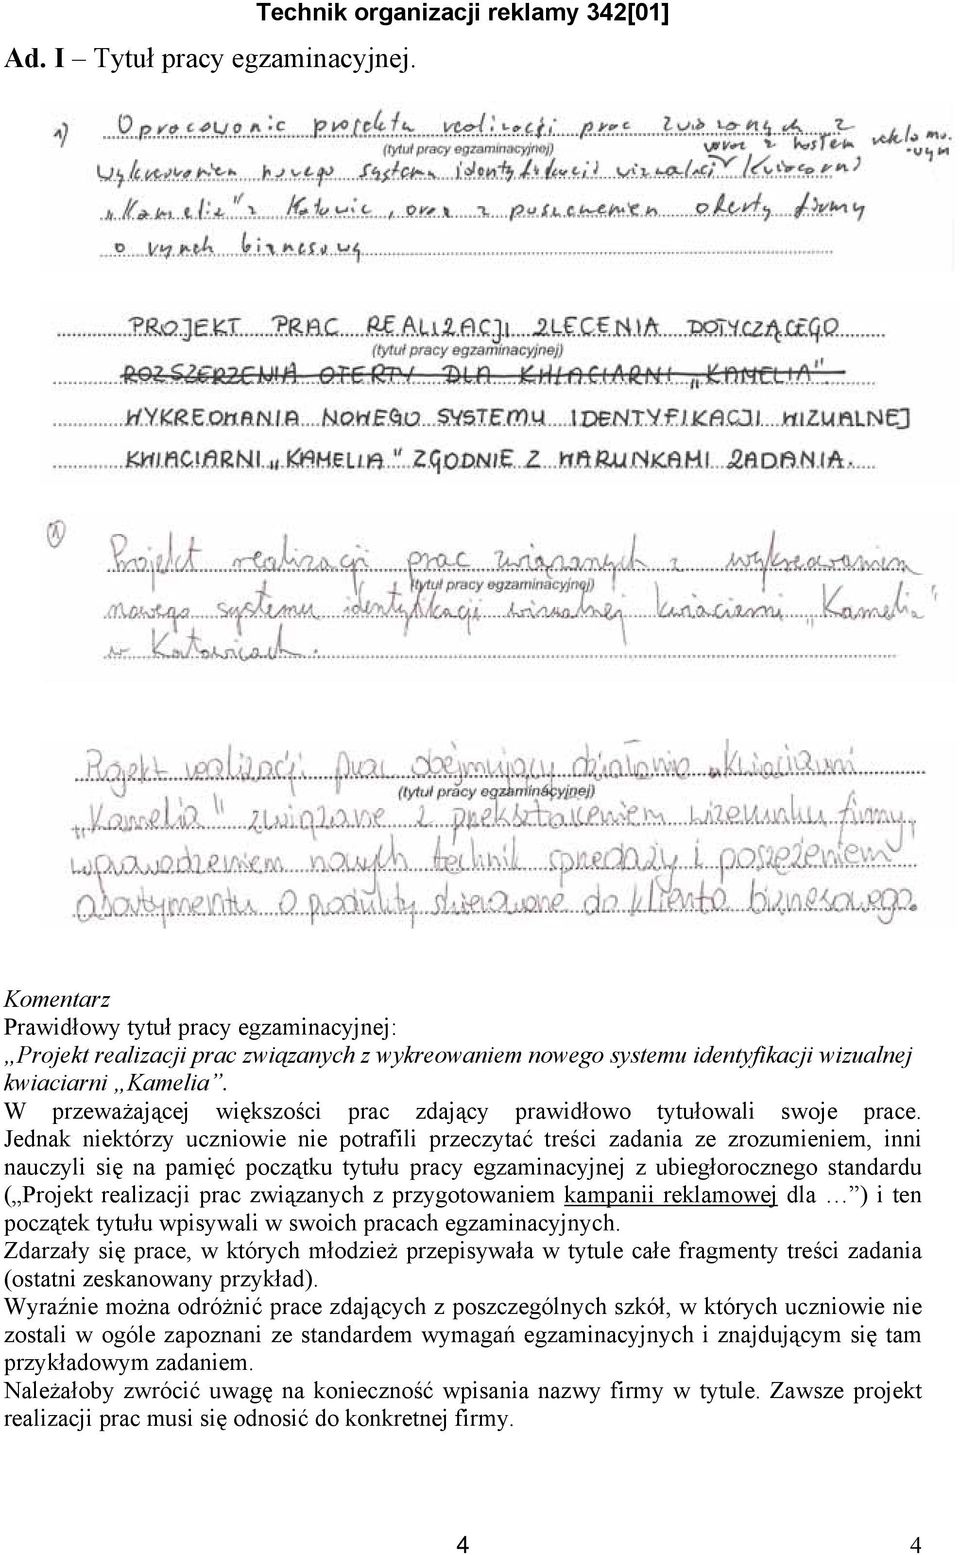 Technik organizacji reklamy 342[01]
Ad. I – Tytuł pracy egzaminacyjnej.
1) Opracowanie projektu realizacji prac związanych z
(tytuł pracy egzaminacyjnej)
wraz z hasłem reklamowym
wykreowaniem nowego systemu identyfikacji wizualnej kwiaciarni
„Kamelia" z Katowic, oraz z oferty firmy
o rynek biznesowy
PROJEKT PRAC REALIZACJI ZLECENIA DOTYCZĄCEGO
(tytuł pracy egzaminacyjnej)
ROZSZERZENIA OFERTY DLA KWIACIARNI „KAMELIA"
WYKREOWANIA NOWEGO SYSTEMU IDENTYFIKACJI WIZUALNEJ
KWIACIARNI „KAMELIA" ZGODNIE Z WARUNKAMI ZADANIA.
1)
Projekt realizacji prac związanych z wykreowaniem
(tytuł pracy egzaminacyjnej)
nowego systemu identyfikacji wizualnej kwiaciarni „Kamelia"
w Katowicach.
Projekt realizacji prac obejmujący działanie „kwiaciarni
(tytuł pracy egzaminacyjnej)
„Kamelia" związane z przekształceniem wizerunku firmy,
wprowadzeniem nowych technik sprzedaży i
asortymentu o produkty skierowane do klienta biznesowego.
Komentarz
Prawidłowy tytuł pracy egzaminacyjnej:
„Projekt realizacji prac związanych z wykreowaniem nowego systemu identyfikacji wizualnej
kwiaciarni „Kamelia”.
W przeważającej większości prac zdający prawidłowo tytułowali swoje prace.
Jednak niektórzy uczniowie nie potrafili przeczytać treści zadania ze zrozumieniem, inni
nauczyli się na pamięć początku tytułu pracy egzaminacyjnej z ubiegłorocznego standardu
(„Projekt realizacji prac związanych z przygotowaniem kampanii reklamowej dla … ”) i ten
początek tytułu wpisywali w swoich pracach egzaminacyjnych.
Zdarzały się prace, w których młodzież przepisywała w tytule całe fragmenty treści zadania
(ostatni zeskanowany przykład).
Wyraźnie można odróżnić prace zdających z poszczególnych szkół, w których uczniowie nie
zostali w ogóle zapoznani ze standardem wymagań egzaminacyjnych i znajdującym się tam
przykładowym zadaniem.
Należałoby zwrócić uwagę na konieczność wpisania nazwy firmy w tytule. Zawsze projekt
realizacji prac musi się odnosić do konkretnej firmy.
4 4